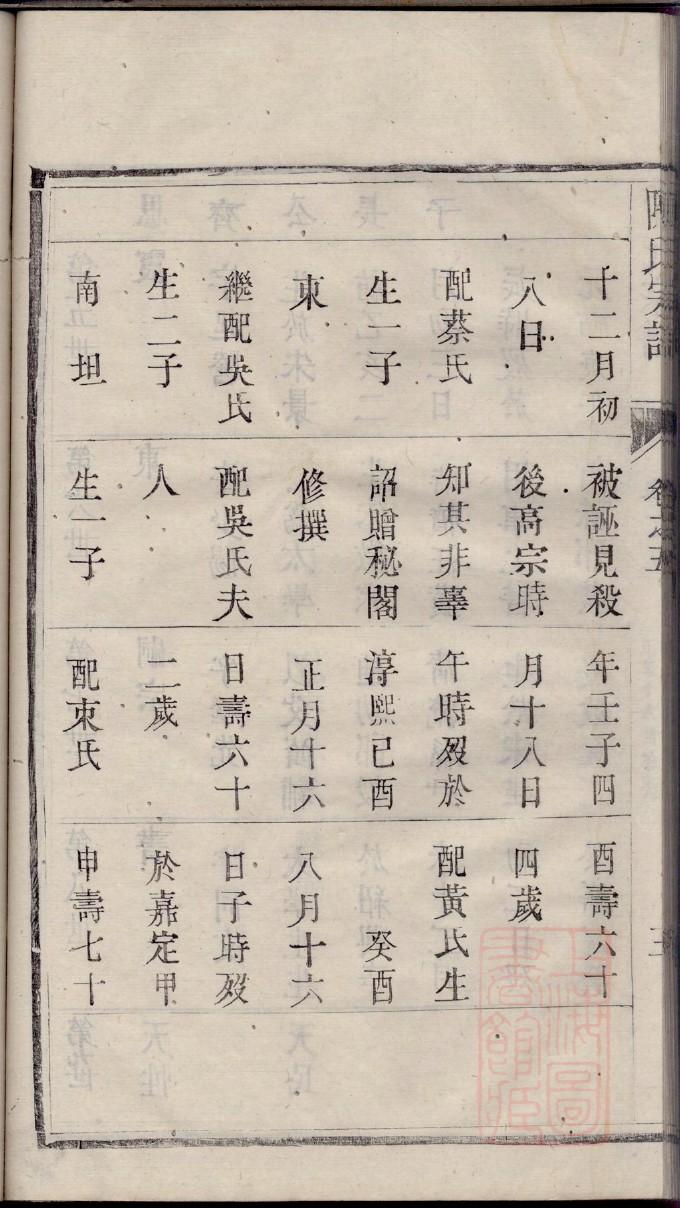 陳氏宗譜
卷之五
十二月初
八日
配蔡氏
生一子
東
繼配吳氏
生二子
南 坦
被誣見殺
後高宗時
知其非辜
詔贈秘閣
修撰
配吳氏夫
人
生一子
年壬子四
月十八日
午時歿於
淳熙已酉
正月十六
日壽六十
二歲
配束氏
酉壽六十
四歲
配黃氏生
癸酉
八月十六
日子時歿
於嘉定甲
申壽七十
上海圖書館藏